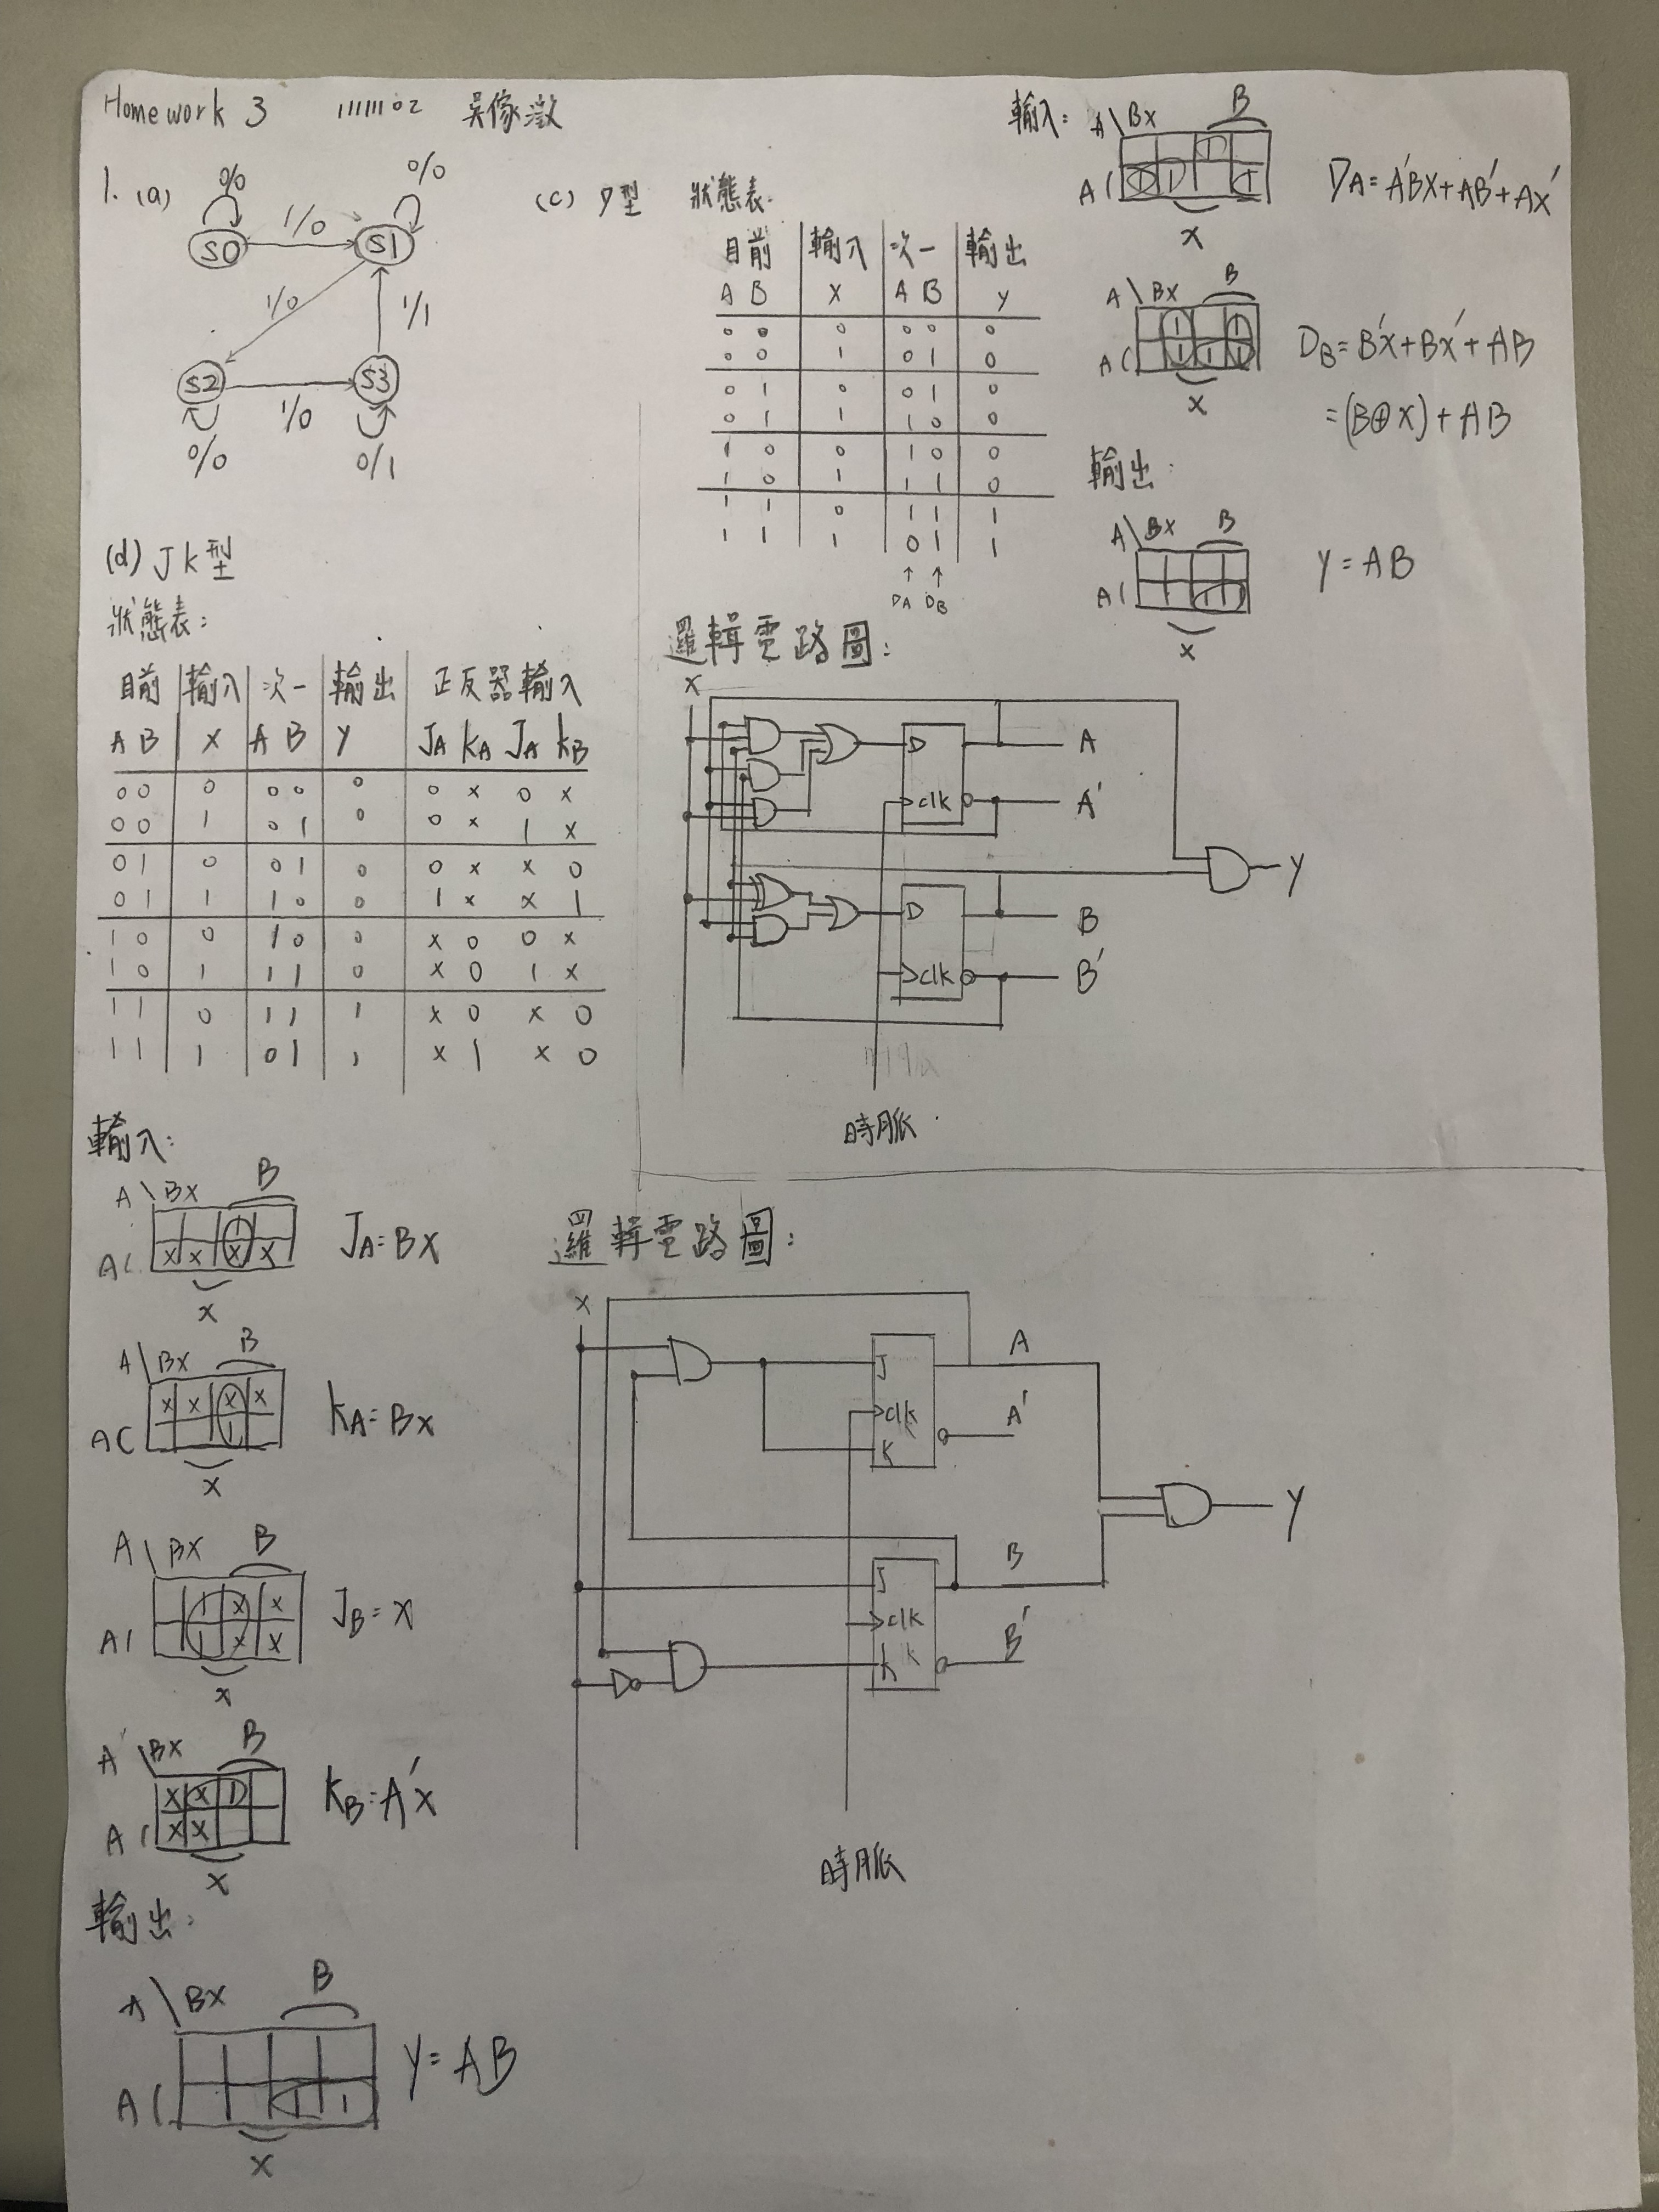 Homework 3 11111102
1. (a)
0/0
0/0
1/0
S0
S1
1/0
1/1
S2
S3
1/0
0/0
0/1
(c) D型 狀態表:
目前 輸入 次一 輸出
A B X A B Y
0 0 0 0 0 0
0 0 1 0 1 0
0 1 0 0 1 0
0 1 1 1 0 0
1 0 0 1 0 0
1 0 1 1 1 0
1 1 0 1 1 1
1 1 1 0 1 1
↑ ↑
DA DB
輸入:
A\BX B
1
A 1 1 1
X
DA = A'BX + AB' + AX'
A\BX B
1 1
A 1 1 1
X
DB = B'X + BX' + AB
= (B⊕X) + AB
輸出:
A\BX B
A 1 1
X
Y = AB
邏輯電路圖:
X
D
clk
A
A'
Y
D
clk
B
B'
時脈
(d) JK型
狀態表:
目前 輸入 次一 輸出 正反器輸入
A B X A B Y JA KA JA KB
0 0 0 0 0 0 0 x 0 x
0 0 1 0 1 0 0 x 1 x
0 1 0 0 1 0 0 x x 0
0 1 1 1 0 0 1 x x 1
1 0 0 1 0 0 x 0 0 x
1 0 1 1 1 0 x 0 1 x
1 1 0 1 1 1 x 0 x 0
1 1 1 0 1 1 x 1 x 0
輸入:
A\BX B
1
A x x x x
X
JA = BX
A\BX B
x x x x
A 1
X
KA = BX
A\BX B
1 x x
A 1 x x
X
JB = X
A\BX B
x x 1
A x x
X
KB = A'X
輸出:
A\BX B
A 1 1
X
Y = AB
邏輯電路圖:
X
J
clk
K
A
A'
Y
J
clk
K
B
B'
時脈